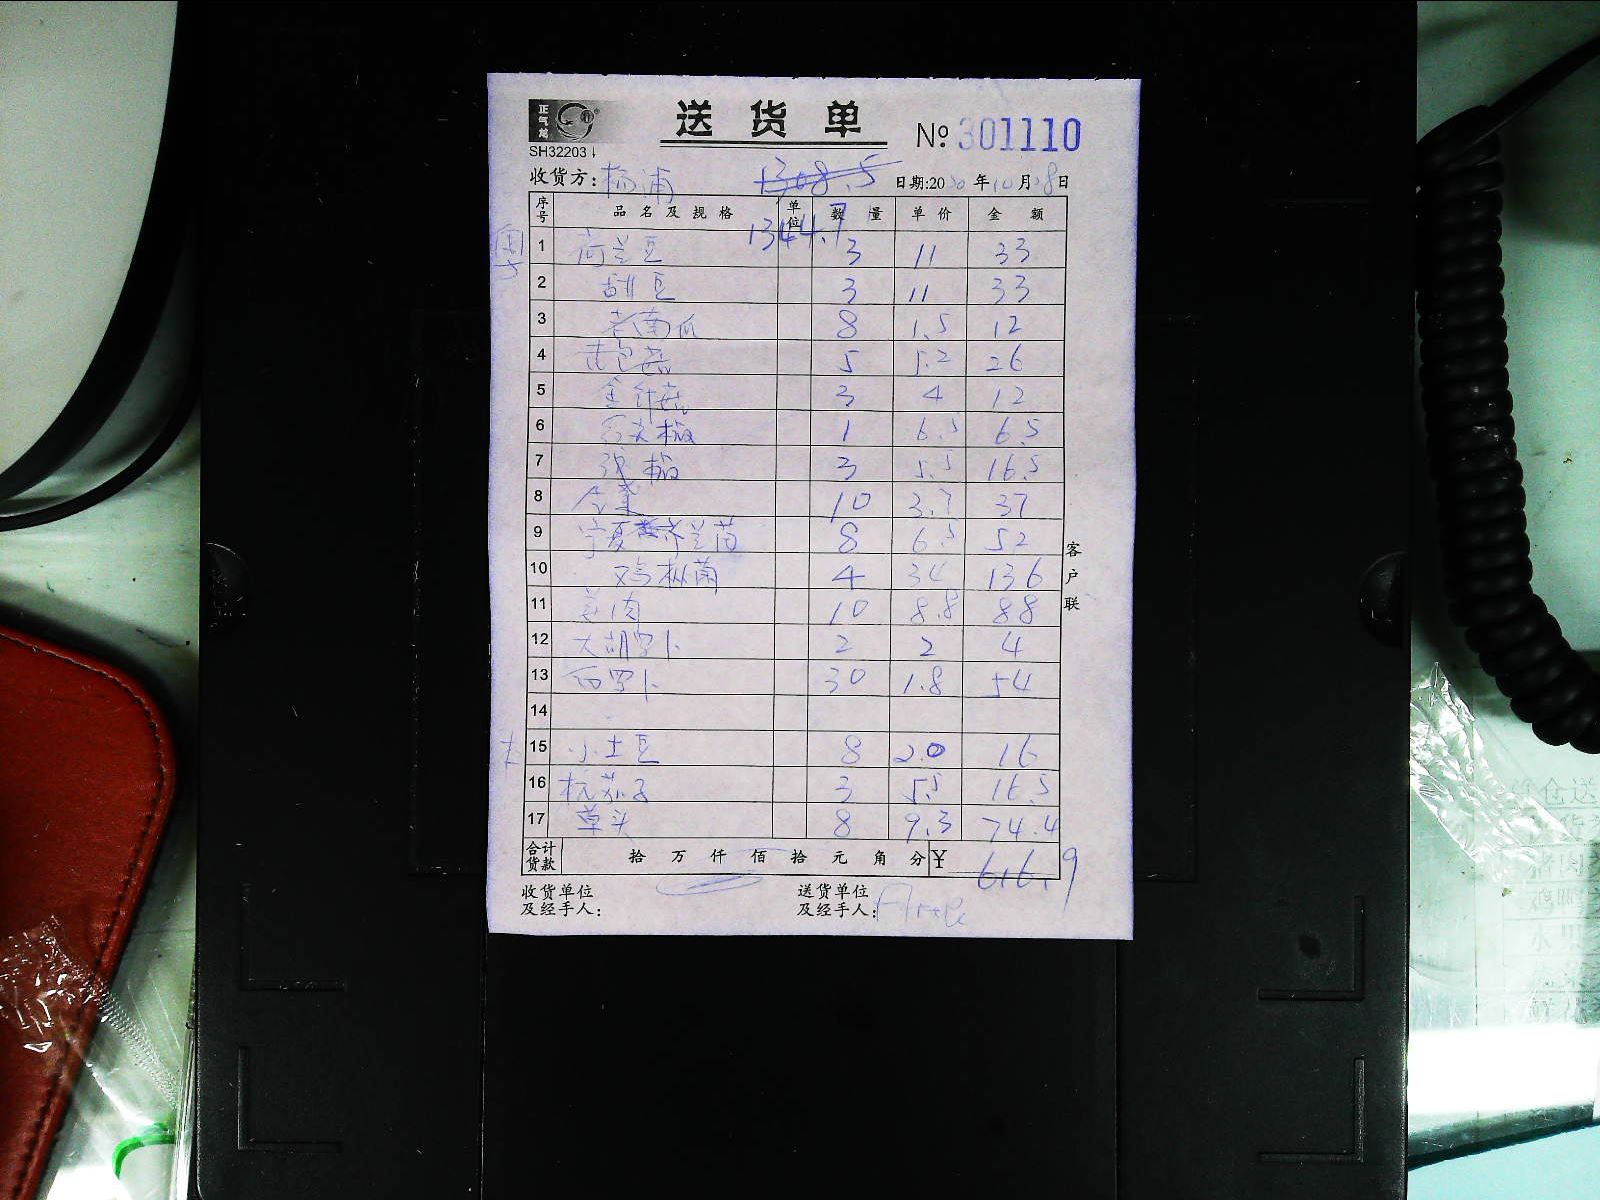 正气鸽
送货单
No 301110
SH32203
收货方: 杨浦 1308.5 日期:2020年10月28日
序号 品名及规格 单位 数量 单价 金额
1344.7
1 荷兰豆 3 11 33
2 胡豆 3 11 33
3 老南瓜 8 1.5 12
4 5 5.2 26
5 金针菇 3 4 12
6 椒 1 6.5 6.5
7 椒 3 5.5 16.5
8 10 3.7 37
9 宁夏 8 6.5 52
10 鸡枞菌 4 34 136
11 姜肉 10 8.8 88
12 大胡罗卜 2 2 4
13 白罗卜 30 1.8 54
14
15 小土豆 8 2.0 16
16 杭茄子 3 5.5 16.5
17 草头 8 9.3 74.4
合计货款 拾万仟佰拾元角分 ¥ 616.9
收货单位及经手人: 送货单位及经手人:
客户联